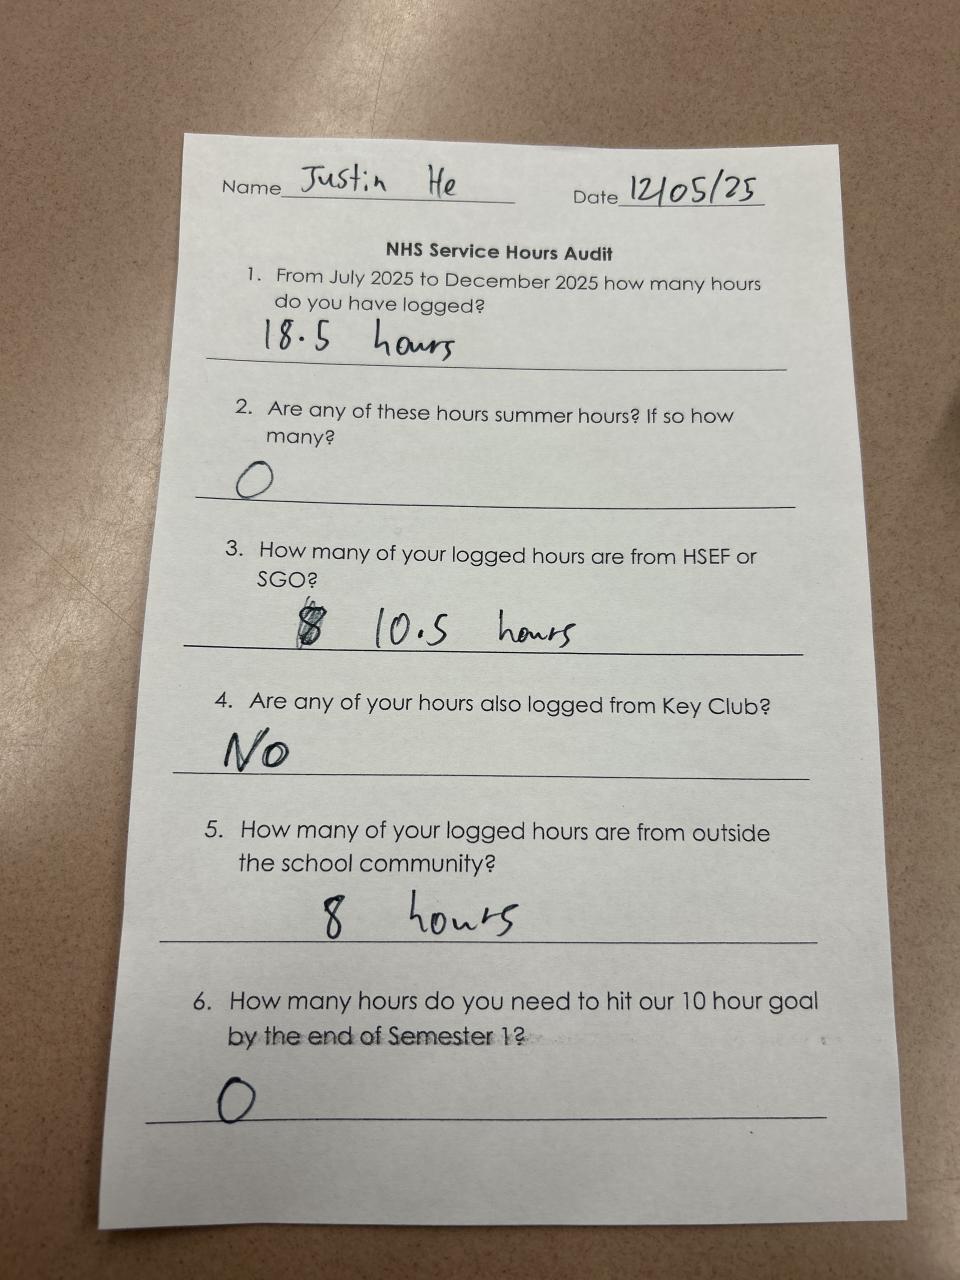 Name Justin He Date 12/05/25
NHS Service Hours Audit
1. From July 2025 to December 2025 how many hours
do you have logged?
18.5 hours
2. Are any of these hours summer hours? If so how
many?
0
3. How many of your logged hours are from HSEF or
SGO?
10.5 hours
4. Are any of your hours also logged from Key Club?
No
5. How many of your logged hours are from outside
the school community?
8 hours
6. How many hours do you need to hit our 10 hour goal
by the end of Semester 1?
0